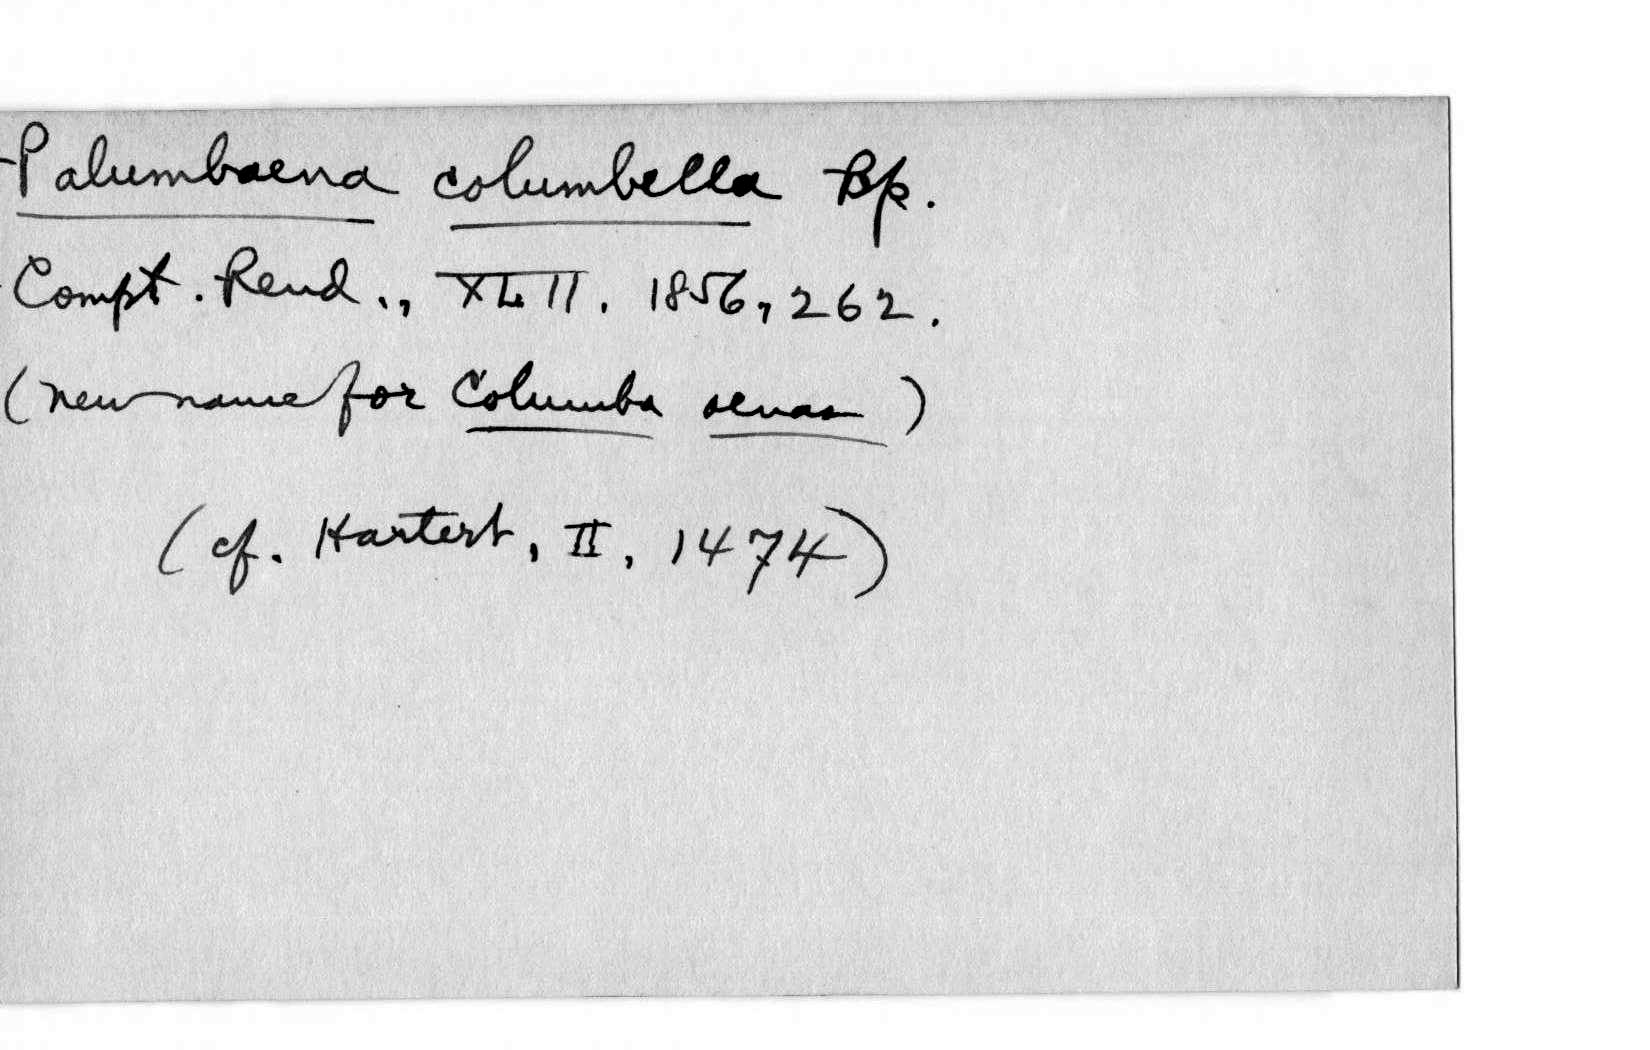 Palumbaena columbella Bp.
Compt. Rend., XLII. 1856, 262.
(new name for Columba oenas)
(cf. Hartert, II, 1474)